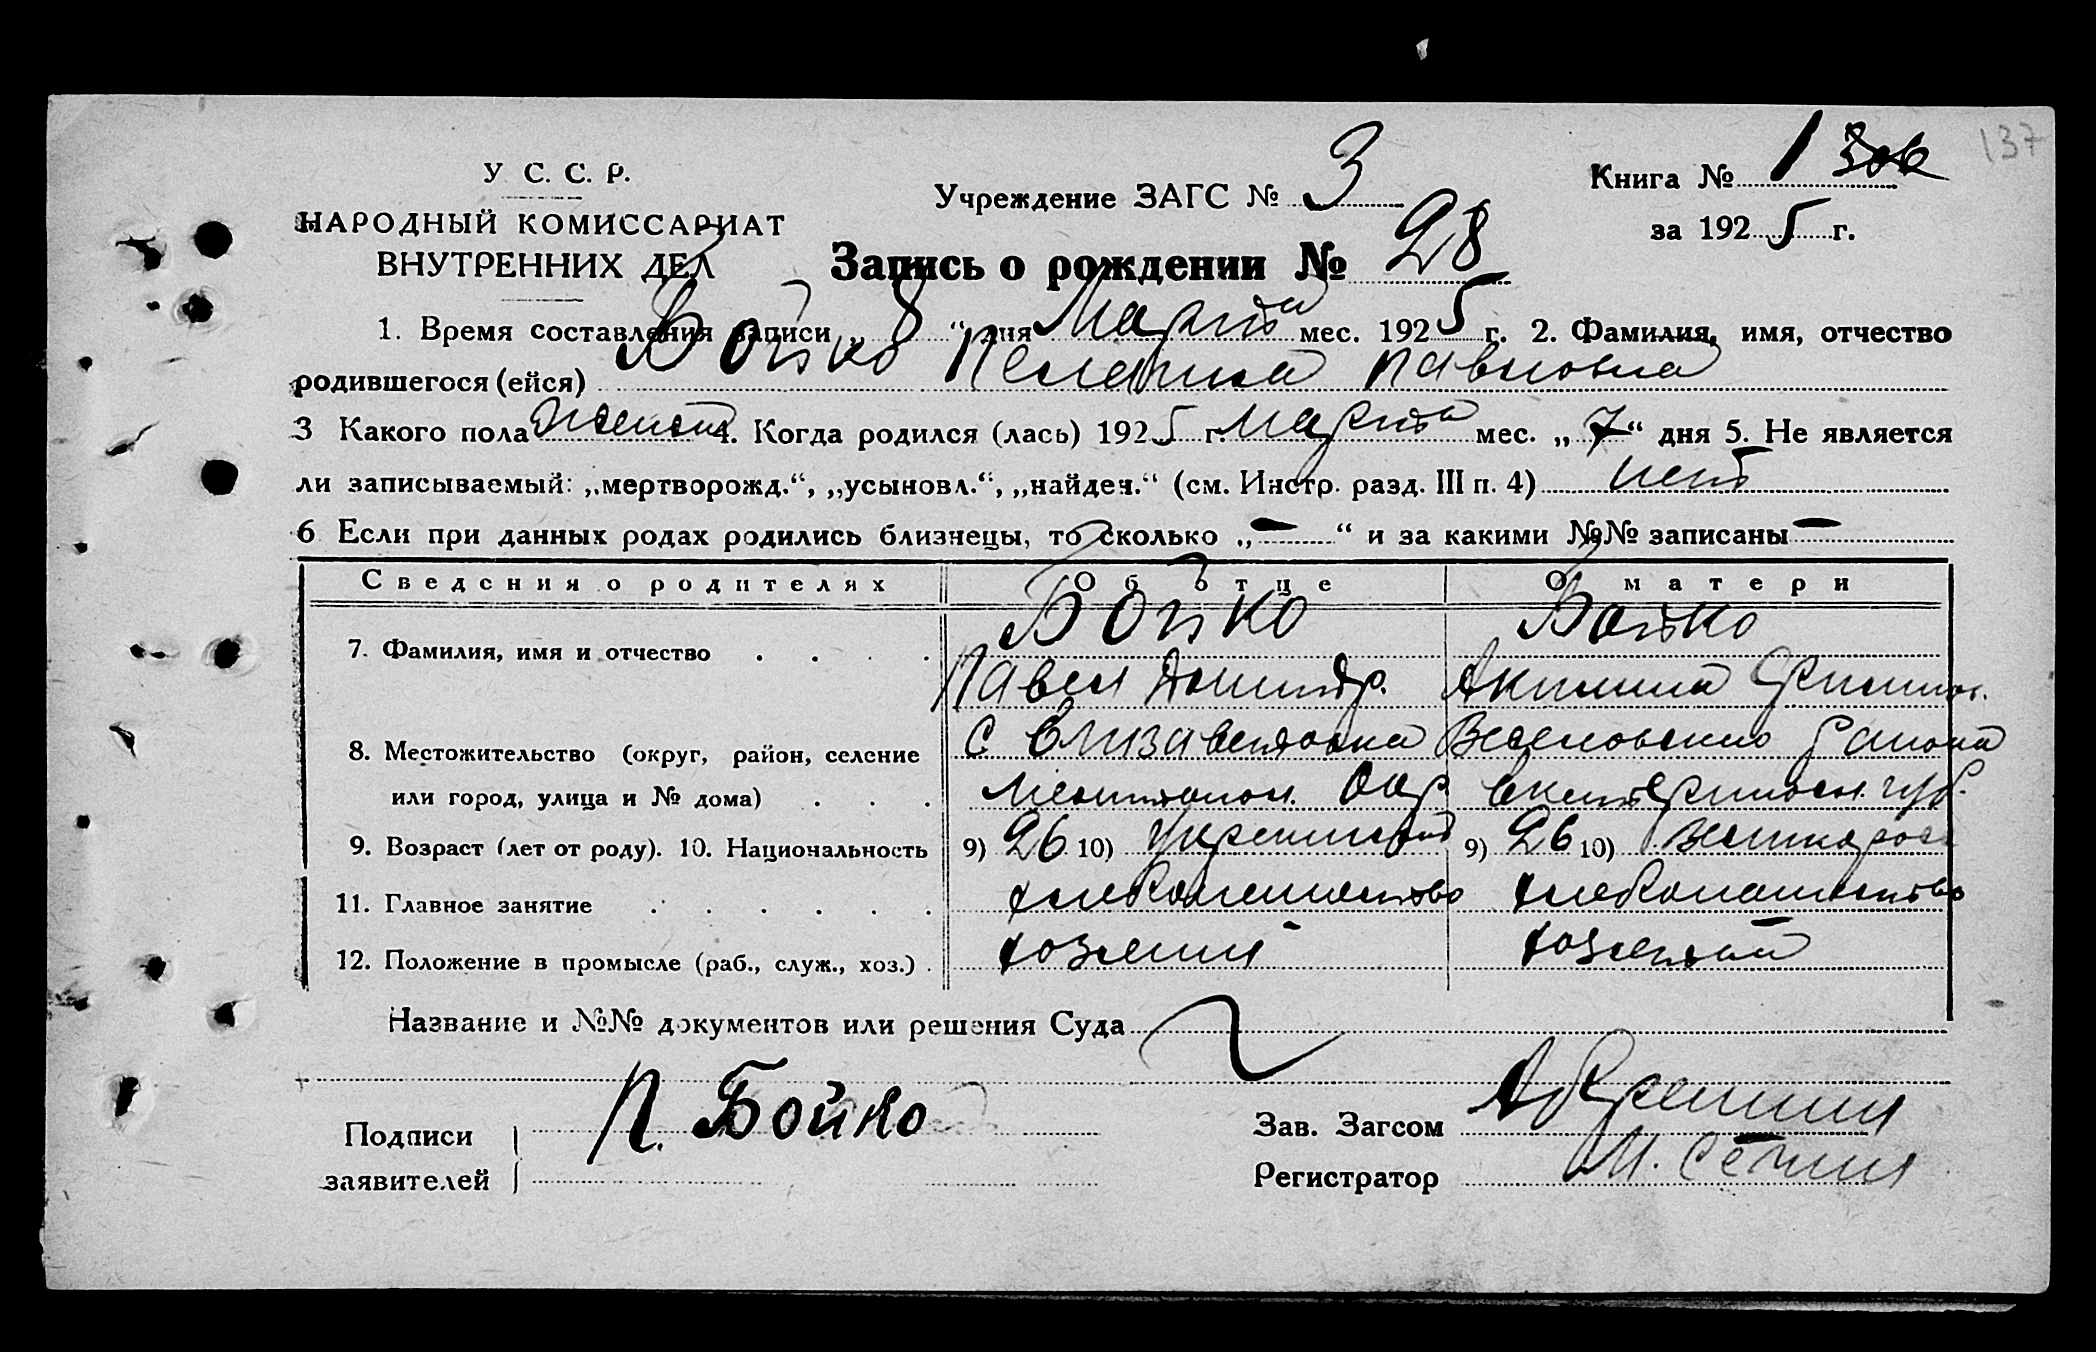 137
У. С. С. Р.
НАРОДНЫЙ КОМИССАРИАТ
ВНУТРЕННИХ ДЕЛ
Учреждение ЗАГС № 3
Книга № 1
за 1925 г.
Запись о рождении № 28
1. Время составления записи „ 8 “ дня Марта мес. 1925 г. 2. Фамилия, имя, отчество
родившегося (ейся) Бойко Пелагия Павловна
3 Какого пола женск 4. Когда родился (лась) 1925 г. Марта мес. „ 7 “ дня 5. Не является
ли записываемый: „мертворожд.“, „усыновл.“, „найден.“ (см. Инстр. разд. III п. 4) нет
6 Если при данных родах родились близнецы, то сколько „ — “ и за какими №№ записаны —
Сведения о родителях Об отце О матери
7. Фамилия, имя и отчество Бойко Бойко
Павел Димитр. Акилина
8. Местожительство (округ, район, селение с Елизаветовка Веселовского района
или город, улица и № дома) Мелитопол. Окр Екатериносл. губ.
9. Возраст (лет от роду). 10. Национальность 9) 26 10) Украинец 9) 26 10) великорос
11. Главное занятие хлебопашество хлебопашество
12. Положение в промысле (раб., служ., хоз.) хозяин хозяйка
Название и №№ документов или решения Суда
Подписи П. Бойко Зав. Загсом
заявителей Регистратор М.